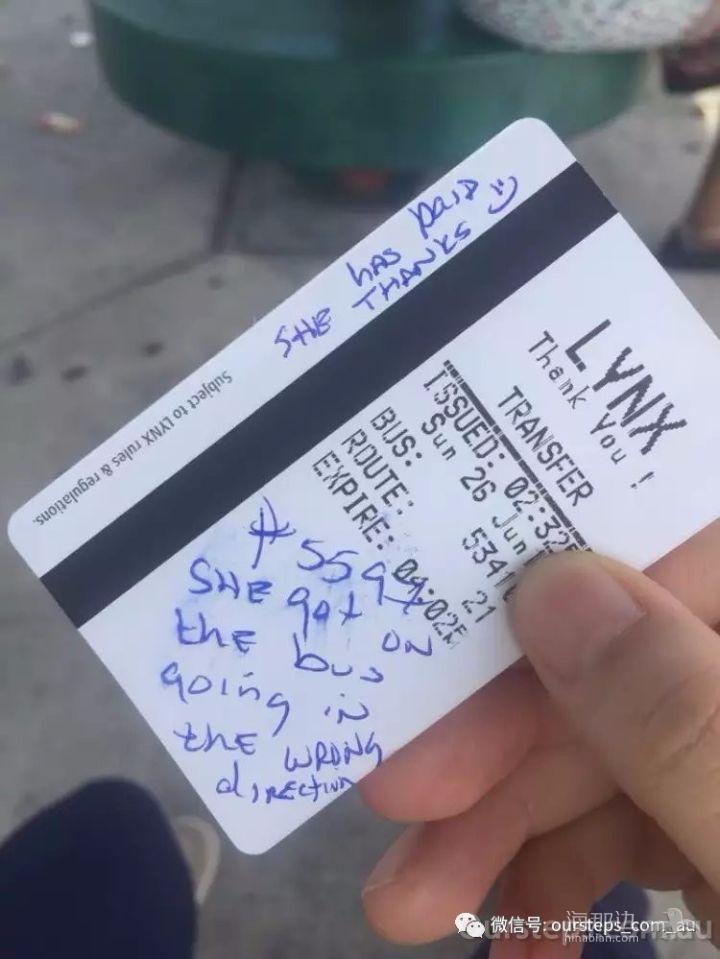 SHE HAS PAID
THANKS
Subject to LYNX rules & regulations.
LYNX
Thank You !
TRANSFER
ISSUED: 02:32
Sun 26 Jun
BUS: 534
ROUTE: 21
EXPIRE: 04:02
SHE got ON
the bus
going in
the WRONG
direction
微信号: oursteps_com_au
海那边
hinabian.com
oursteps.com.au